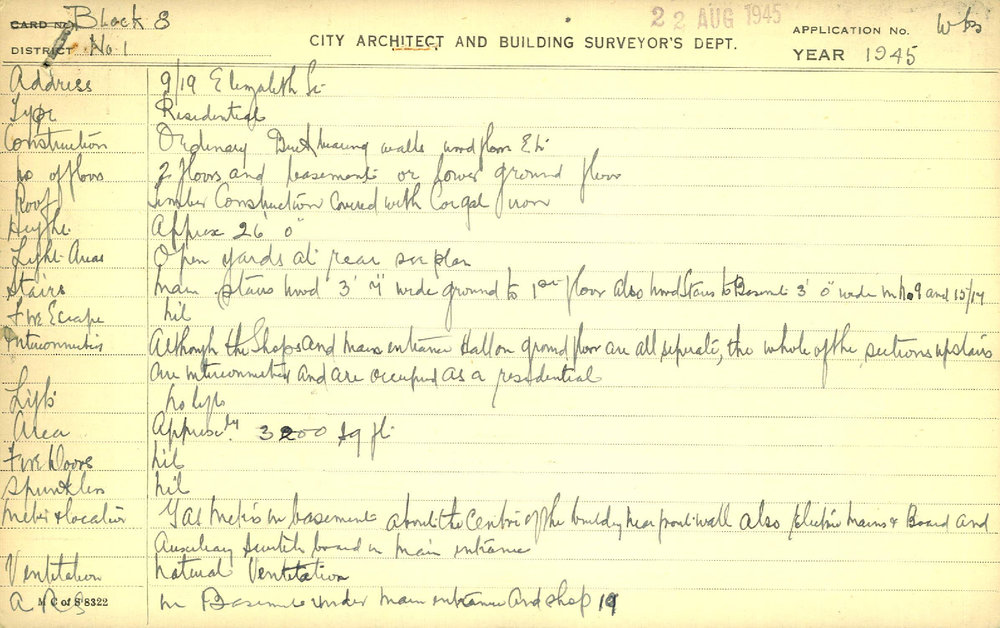 CARD No. Block 8
22 AUG 1945
APPLICATION No.
DISTRICT No. 1
CITY ARCHITECT AND BUILDING SURVEYOR'S DEPT.
YEAR 1945
Address 9/19 Elizabeth St.
Type Residential
Construction Ordinary Brick bearing walls wood floors Etc.
No of floors 2 floors and basement or lower ground floor
Roof Timber Construction Covered with Corgal iron
Height Approx 26' 0"
Light Areas Open yards at rear see plan
Stairs Main stairs wood 3' wide ground to 1st floor also wood stairs to Basemt 3' 0" wide in No 9 and 15/17
Fire Escape Nil
Interconnectn Although the Shops and main entrance Hall on ground floor are all seperate, the whole of the sections upstairs
are interconnected and are occupied as a residential
Lifts No lifts
Area Approx 3200 sq ft.
Fire Doors Nil
Sprinklers Nil
Meters & location Gas Meters in basement about the Centre of the building near front wall also Electric Mains & Board and
Auxiliary Switch board in Main entrance
Ventilation Natural Ventilation
M C of S 8322
A R S In Basement under main entrance and shop 19